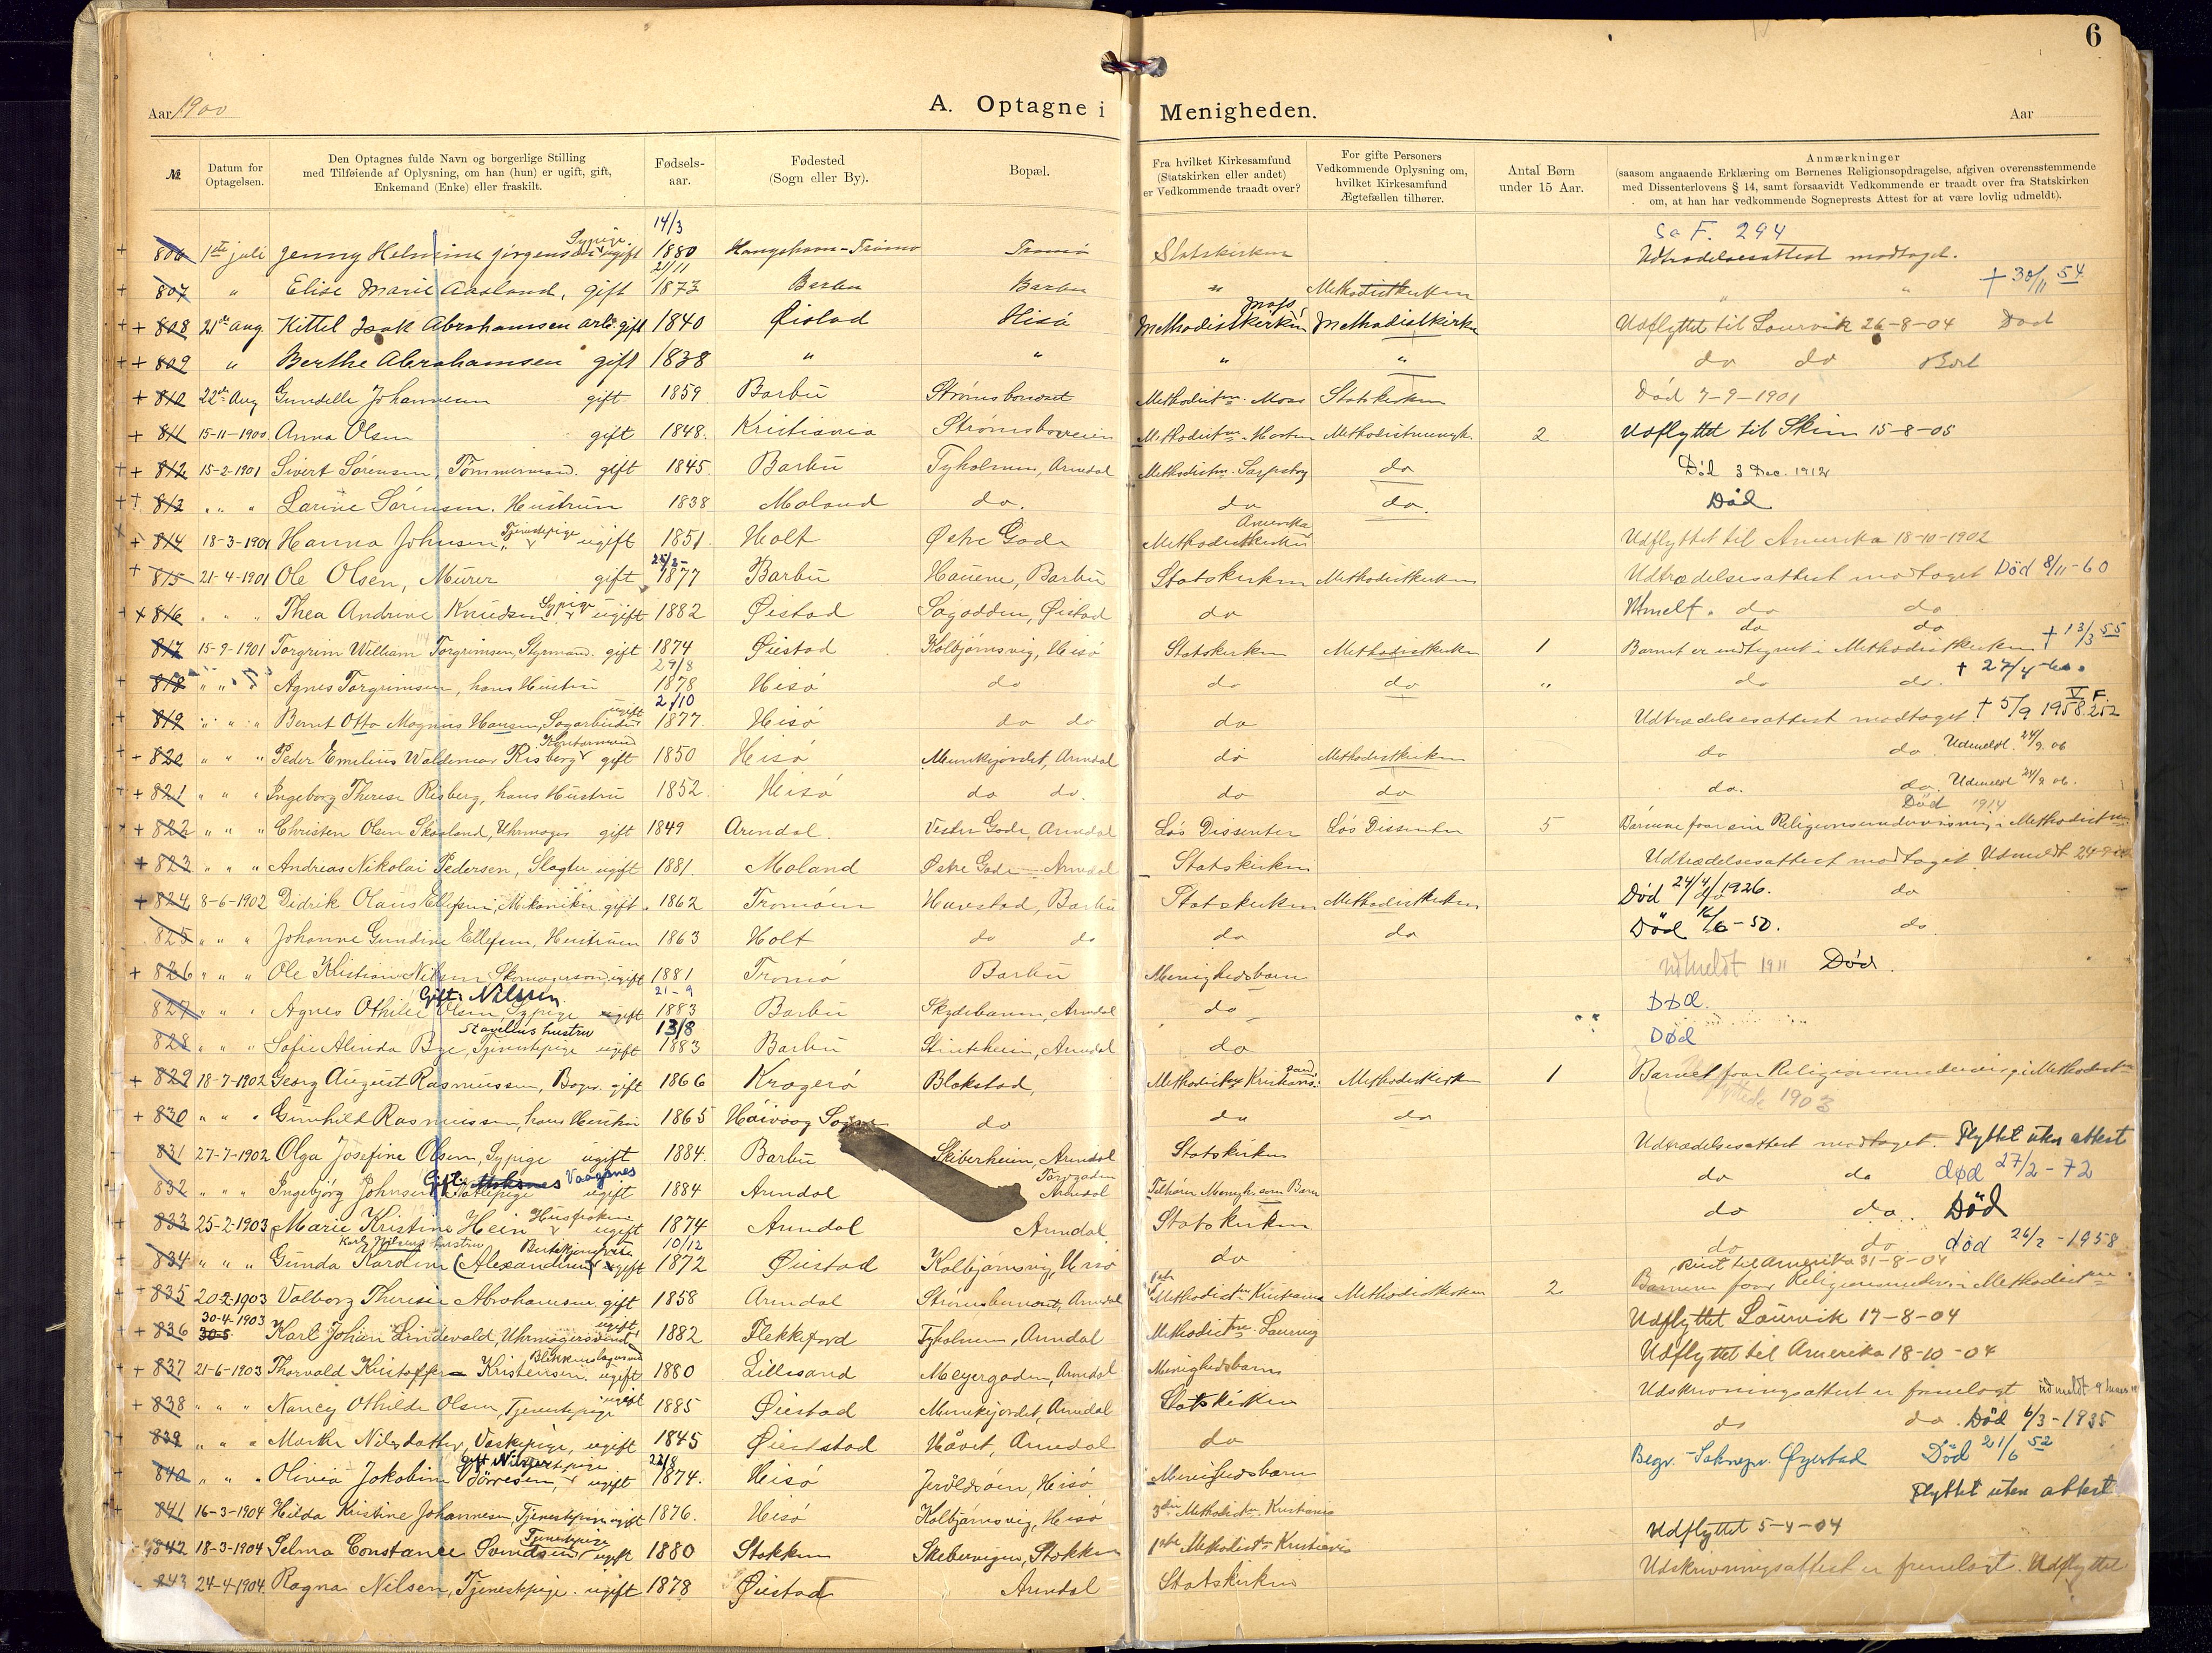 6
Aar 1900
A. Optagne i Menigheden.
Aar
№
Datum for Optagelsen.
Den Optagnes fulde Navn og borgerlige Stilling med Tilføiende af Oplysning, om han (hun) er ugift, gift, Enkemand (Enke) eller fraskilt.
Fødsels-aar.
Fødested (Sogn eller By).
Bopæl.
Fra hvilket Kirkesamfund (Statskirken eller andet) er Vedkommende traadt over?
For gifte Personers Vedkommende Oplysning om, hvilket Kirkesamfund Ægtefællen tilhører.
Antal Børn under 15 Aar.
Anmærkninger (saasom angaaende Erklæring om Børnenes Religionsopdragelse, afgiven overensstemmende med Dissenterlovens § 14, samt forsaavidt Vedkommende er traadt over fra Statskirken om, at han har vedkommende Sogneprests Attest for at være lovlig udmeldt).
14/3 F. 294
+ 806 1ste juli Jenny Helmine Jørgensen Sypige ugift 1880 Tromø Statskirken Udtrædelsesattest modtaget.
21/11
+ 807 " Elise Marie Aasland, gift 1873 Barbu Barbu " Methodistkirken " " + 30/11 54
+ + 808 21de aug Kittel Isak Abrahamsen arb. gift 1840 Øistad Hisø Methodistkirken Moss Methodistkirken Udflyttet til Laurvik 26-8-04 Død
+ + 809 " Berthe Abrahamsen gift 1838 " " " " do do
+ 810 22de Aug Gundelle Johannesen gift 1859 Barbu Strømsbomost Methodistm. Moss Statskirken Død 7-9-1901
+ 811 15-11-1900 Anna Olsen gift 1848. Kristiania Methodistm. Horten Methodistmenigh. 2 Udflyttet til Skien 15-8-05
+ + 812 15-2-1901 Sivert Sørensen, Tømmermand. gift 1845. Barbu Tyholmen, Arendal Methodistm. Sarpsborg do Død 3 Dec. 1912
+ + 813 " " " Larine Sørensen. Hustruen 1838 Moland do. do do. Død
+ + 814 18-3-1901 Hanna Johnsen, Tjenestepige ugift 1851. Holt Østre Gade Methodistkirken Amerika Udflyttet til Amerika 18-10-1902
+ 815 21-4-1901 Ole Olsen, Murer gift 1877 Barbu Hauene, Barbu Statskirken Methodistkirken Udtrædelsesattest modtaget Død 8/11-60
+ + 816 " " " Thea Andrine Knudsen Sypige ugift 1882 Øistad Sagodden, Øistad do Utmelt. do do
do do
817 15-9-1901 Torgrim William Torgrimsen, Styrmand. gift 1874 Øiestad Kolbjørnsvig, Hisø Statskirken Methodistkirken 1 Barnet er indtegnet i Methodistkirken + 13/3 55
29/8
818 " " " Agnes Torgrimsen, hans Hustru 1878 Hisø do do do " do do. + 27/4-60
2/10
819 " " " Bernt Otto Magnus Hansen, Sagarbeider ugift 1877. Hisø do do do Udtrædelsesattest modtaget + 5/9 1958 V F 252
+ 820 " " " Peder Emelius Waldemar Risberg Kontormand gift 1850 Hisø Munkejordet, Arendal do Methodistkirken do do Udmeldt 24/9 06
+ 821 " " " Ingeborg Therese Risberg, hans Hustru 1852. Hisø do do. do do do. do. Udmeldt 24/9 06.
Død 1914
+ 822 " " " Christen Olsen Skaaland, Uhrmager gift 1849 Arendal. Vestre Gade, Arendal Løs Dissenter Løs Dissenter 5 Børnene faar sin Religionsundervisning i Methodistm
+ 823 " " " Andreas Nikolai Pedersen, Slagter ugift 1881. Moland Østre Gade Arendal Statskirken Udtrædelsesattest modtaget Utmeldt
+ 824 8-6-1902 Didrik Olaus Ellefsen, Mekaniker gift. 1862 Tromøen Havstad, Barbu Statskirken Methodistkirken Død 24/4 1926. do
825 " " " Johanne Gundine Ellefsen, Hustruen 1863 Holt do do do do Død 16/6-50. do
+ 826 " " " Ole Kristian Nilsen Skomagersvend ugift 1881 Tromø Barbu Menighedsbarn udmeldt 1911 Død.
Gift: Nilssen. 21-9
827 " " " Agnes Othilie Olsen, Sypige ugift 1883 Barbu Skydebanen, Arendal do Død.
Stavellus hustru 13/8
828 " " " Sofie Alinda Bye, Tjenestepige ugift 1883 Barbu Stintehein, Arendal do Død
+ 829 18-7-1902 Georg August Rasmussen, Bager. gift 1866 Kragerø Blakstad, Methodistm Kristiansand Methodistkirken 1 Barnet faar Religionsundervisning i Methodistm
Flyttede 1903
+ 830 " " " Gunhild Rasmussen, hans Hustru 1865 Høivaag Sogn do do do
831 27-7-1902 Olga Josefine Olsen, Sypige ugift 1884. Barbu Skiberheien, Arendal Statskirken Udtrædelsesattest modtaget. Flyttet uten attest
Gift: Vaagsnes
832 " " " Ingebjørg Johnsen ugift 1884 Arendal Torvgaden Arendal Tilhører Menigh. som Barn do do død 27/2-72
833 25-2-1903 Marie Kristine Hein Husfrøken ugift 1874 Arendal Arendal. Statskirken do do. Død
Karl Nilsens hustru 10/12
834 " " " Gunda Karoline (Alexandersen) ugift 1872 Øiestad Kolbjørnsvig, Hisø do do do død 26/2-1958
Reist til Amerika 31-8-04
+ 835 20-2-1903 Valborg Therese Abrahamsen. gift 1858 Arendal Strømsbomost, Arendal 1ste Methodistm Kristiania Methodistkirken 2 Børnene faar Religionsunderv. i Methodistm
30-4-1903
+ + 836 30-5 Karl Johan Lindevald, Uhrmagersvend ugift 1882 Flekkefjord Tyholmen, Arendal Methodistm. Laurvig Udflyttet Laurvik 17-8-04
+ + 837 21-6-1903 Thorvald Kristoffer Kristensen. Blikkenslagersvend ugift 1880 Lillesand Meyergaden, Arendal Menighedsbarn Udflyttet til Amerika 18-10-04
+ + 838 " " " Nancy Othilde Olsen, Tjenestepige ugift 1885 Øiestad Munkejordet, Arendal Statskirken Udskrivningsattest er fremlagt udmeldt
+ 839 " " " Marthe Nilsdatter, Vaskepige, ugift 1845 Øiestad Håvet, Arendal do do do. Død 6/3-1935
gift Nilsen 22/8
840 " " " Olivia Jakobine Børresen, ugift 1874. Hisø Hisø Menighedsbarn Begr. Soknepr. Øyestad Død 21/6 52
+ 841 16-3-1904 Hilda Kristine Johannesen Tjenestepige ugift 1876. Hisø Kolbjørnsvig, Hisø 3die Methodistm Kristiania Flyttet uten attest
842 18-3-1904 Selma Constance Svendsen Tjenestepige ugift 1880 Stokken Skebervigen, Stokken 1ste Methodistm Kristiania Udflyttet 5-4-04
843 24-4-1904. Ragna Nilsen, Tjenestepige. ugift 1878 Øiestad Arendal Statskirken Udskrivningsattest er fremlagt. Udflyttet